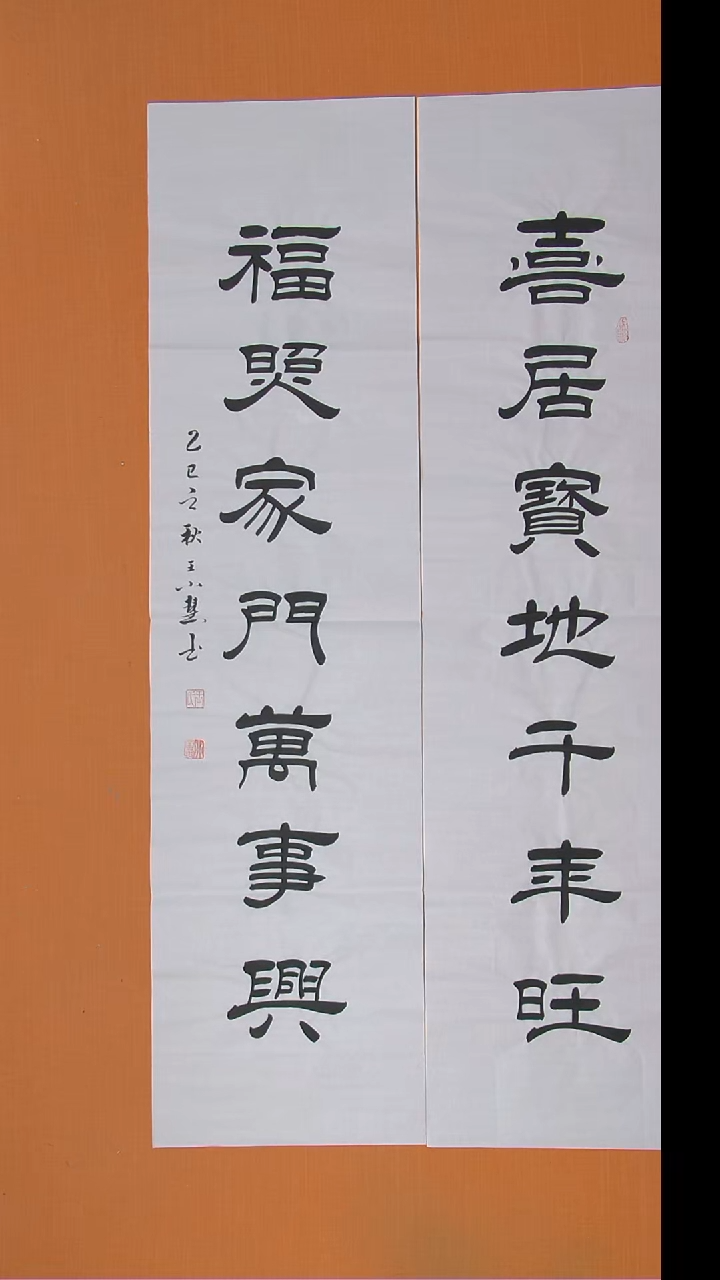 喜居寶地千年旺
福照家門萬事興
乙巳立秋王小慧书